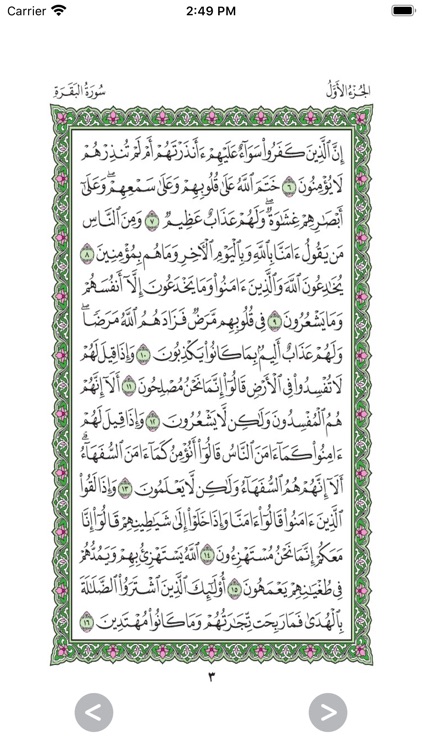 Carrier 2:49 PM
الجُزْءُ الأَوَّلُ سُورَةُ البَقَرَةِ
إِنَّ ٱلَّذِينَ كَفَرُوا۟ سَوَآءٌ عَلَيْهِمْ ءَأَنذَرْتَهُمْ أَمْ لَمْ تُنذِرْهُمْ
لَا يُؤْمِنُونَ ٦ خَتَمَ ٱللَّهُ عَلَىٰ قُلُوبِهِمْ وَعَلَىٰ سَمْعِهِمْ ۖ وَعَلَىٰٓ
أَبْصَٰرِهِمْ غِشَٰوَةٌ ۖ وَلَهُمْ عَذَابٌ عَظِيمٌ ٧ وَمِنَ ٱلنَّاسِ
مَن يَقُولُ ءَامَنَّا بِٱللَّهِ وَبِٱلْيَوْمِ ٱلْءَاخِرِ وَمَا هُم بِمُؤْمِنِينَ ٨
يُخَٰدِعُونَ ٱللَّهَ وَٱلَّذِينَ ءَامَنُوا۟ وَمَا يَخْدَعُونَ إِلَّآ أَنفُسَهُمْ
وَمَا يَشْعُرُونَ ٩ فِى قُلُوبِهِم مَّرَضٌ فَزَادَهُمُ ٱللَّهُ مَرَضًا ۖ
وَلَهُمْ عَذَابٌ أَلِيمٌۢ بِمَا كَانُوا۟ يَكْذِبُونَ ١٠ وَإِذَا قِيلَ لَهُمْ
لَا تُفْسِدُوا۟ فِى ٱلْأَرْضِ قَالُوٓا۟ إِنَّمَا نَحْنُ مُصْلِحُونَ ١١ أَلَآ إِنَّهُمْ
هُمُ ٱلْمُفْسِدُونَ وَلَٰكِن لَّا يَشْعُرُونَ ١٢ وَإِذَا قِيلَ لَهُمْ
ءَامِنُوا۟ كَمَآ ءَامَنَ ٱلنَّاسُ قَالُوٓا۟ أَنُؤْمِنُ كَمَآ ءَامَنَ ٱلسُّفَهَآءُ ۗ
أَلَآ إِنَّهُمْ هُمُ ٱلسُّفَهَآءُ وَلَٰكِن لَّا يَعْلَمُونَ ١٣ وَإِذَا لَقُوا۟
ٱلَّذِينَ ءَامَنُوا۟ قَالُوٓا۟ ءَامَنَّا وَإِذَا خَلَوْا۟ إِلَىٰ شَيَٰطِينِهِمْ قَالُوٓا۟ إِنَّا
مَعَكُمْ إِنَّمَا نَحْنُ مُسْتَهْزِءُونَ ١٤ ٱللَّهُ يَسْتَهْزِئُ بِهِمْ وَيَمُدُّهُمْ
فِى طُغْيَٰنِهِمْ يَعْمَهُونَ ١٥ أُو۟لَٰٓئِكَ ٱلَّذِينَ ٱشْتَرَوُا۟ ٱلضَّلَٰلَةَ
بِٱلْهُدَىٰ فَمَا رَبِحَت تِّجَٰرَتُهُمْ وَمَا كَانُوا۟ مُهْتَدِينَ ١٦
٣
< >